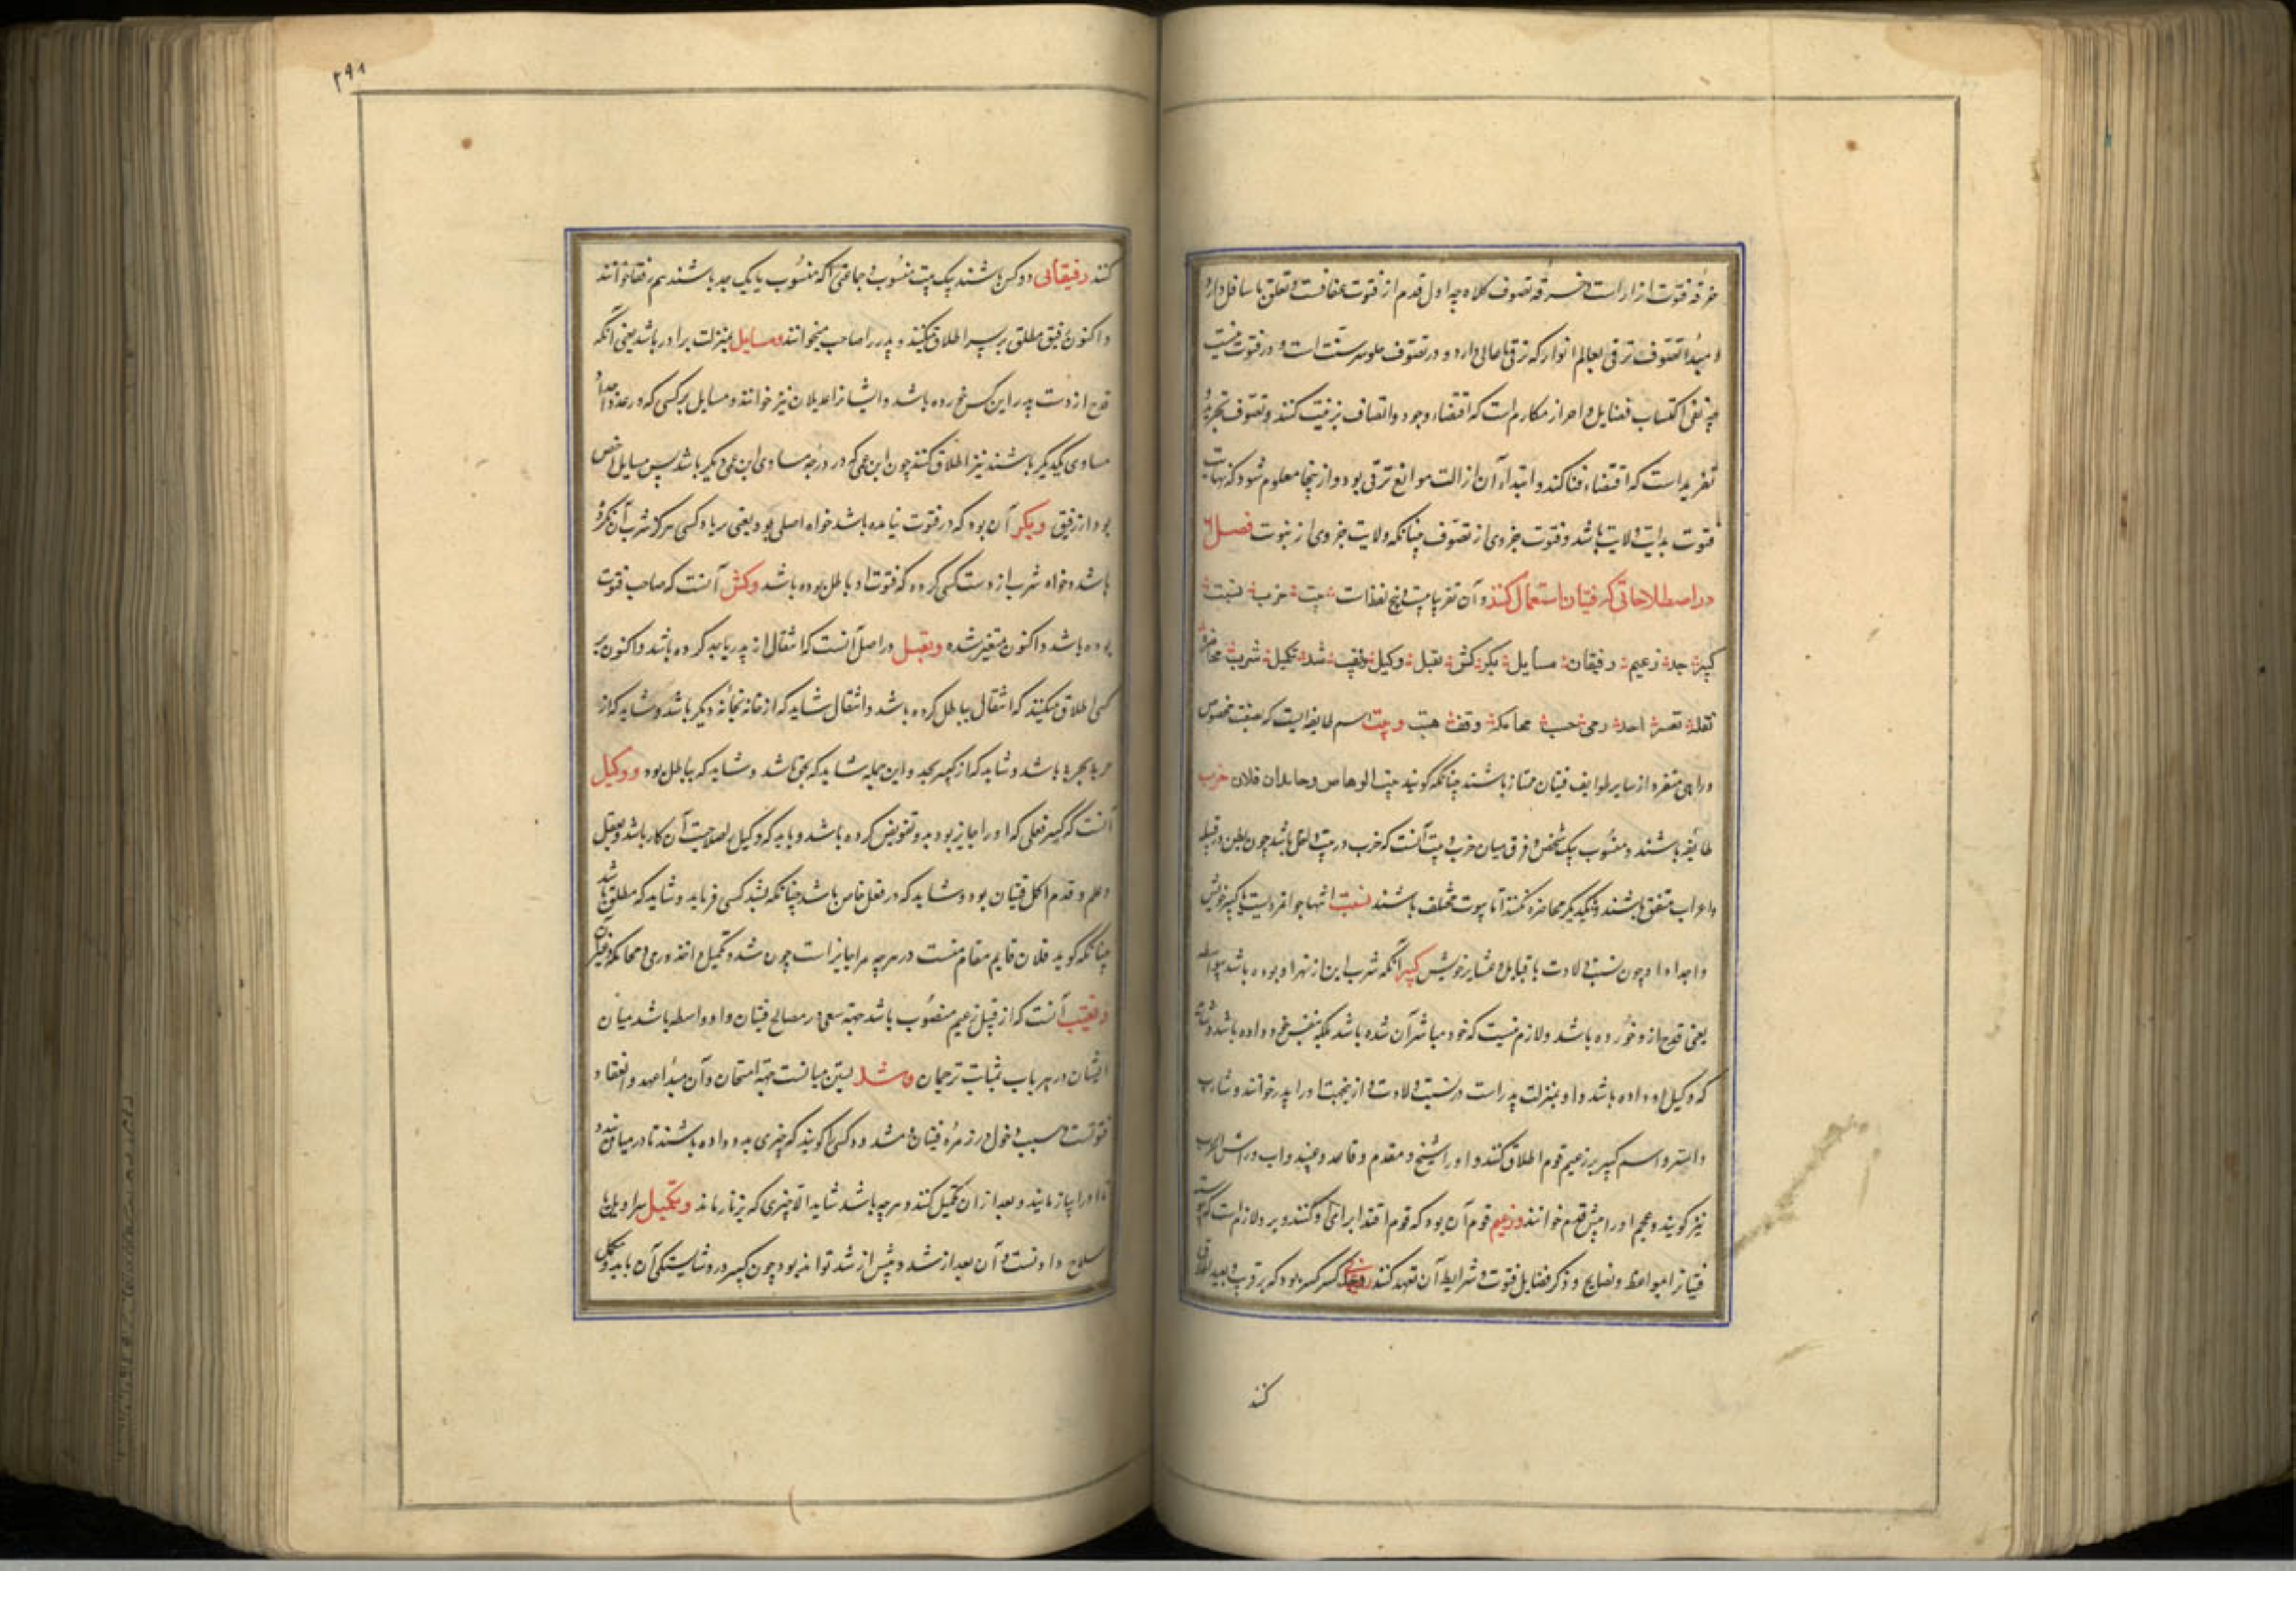 خرقه فتوت ازار است و خرقه تصوف کلاه چه اول قدم از فتوت عفافست و تعلق باسافل دارد
و مبدأ تصوف ترقی بعالم انوار که ترقی باعالی دارد و در تصوف حلق سر سنت است و در فتوت نیست
چه نفی اکتساب فضایل و احراز مکارم است که اقتضاء وجود و اتصاف بزینت کنند و تصوف تجرید و
تفرید است که اقتضاء فنا کند و ابتداء آن ازالت موانع ترقی بود و از ینجا معلوم شود که نهایت
فتوت بدایت ولایت باشد و فتوت جزوی از تصوف چنانکه ولایت جزوی از نبوت فصل
در اصطلاحاتی که فتیان استعمال کنند و آن تقریبا بیست و پنج لفظ است بیت حزب نسبت
کبیر جد زعیم رفیقان مسایل بکر نکش نقیل وکیل نقیب شد تکمیل شرب محاضره
نقله احد رمی محاکمه وقف هبت و بیت اسم طایفه ایست که بصفت مخصوص
و راهی منفرد از سایر طوایف فتیان ممتاز باشند چنانکه گویند بیت الوهاص و خاندان فلان حزب
طایفه باشند منسوب بیک شخص و فرق میان حزب و بیت آنست که حزب در بیت داخل باشد چون بطن در قبیله
و احزاب متفق باشند و با یکدیگر محاضره کنند اما بیوت مختلف باشند نسبت انتماء جوانمردیست با کبیر خویش
و اجداد او چون نسبت ولادت با قبایل و عشایر خویش کبیر آنکه شرب این از بهر او بوده باشد بیواسطه
یعنی قدح ازو خورده باشد و لازم نیست که خود مباشر آن شده باشد بلکه بنفس خود داده باشد و شاید
که وکیل او داده باشد و او بمنزلت پدر است در نسبت ولادت و ازینجهت او را پدر خوانند و شارب
را پسر و اسم کبیر بر زعیم قوم اطلاق کنند و او را شیخ و مقدم و قاید و عقید و اب و رأس الحزب
نیز گویند و عجم او را پیش قدم خوانند و زعیم قوم آن بود که قوم اقتدا برای او کنند و بر او لازم است که پیوسته
فتیان را بمواعظ و نصایح و ذکر فضایل فتوت و شرایط آن تعهد کنند و جد کبیر کبیر بود که بر قریب و بعید اطلاق
کنند
۲۹۸
کنند رفیقان دو کس باشند بیک بیت منسوب و جماعتی را که منسوب با یک جد باشند هم رفقا خوانند
و اکنون رفیق مطلق بر پسر اطلاق میکنند و پدر را صاحب میخوانند و مسایل بمنزلت برادر باشد یعنی آنکه
قدح از دست پدر این کس خورده باشد و ایشانرا عدیلان نیز خوانند و مسایل بر کسی که در عدد اجداد
مساوی یکدیگر باشند نیز اطلاق کنند چون ابن عمی که در درجه مساوی ابن عمی دیگر باشد پس مسایل اخص
بود از رفیق و بکر آن بود که در فتوت نیامده باشد خواه اصلی بود یعنی با کسی هرگز شرب آن نکرده
باشد و خواه شرب از دست کسی کرده که فتوت او باطل بوده باشد و نکش آنست که صاحب فتوت
بوده باشد و اکنون متغیر شده و نقیل در اصل آنست که انتقال از پدر یا جد کرده باشد و اکنون بر
کسی اطلاق میکنند که انتقال بباطل کرده باشد و انتقال شاید که از خانه بخانه دیگر باشد و شاید که از
حزب بحزب باشد و شاید که از کبیر بجد و این جمله شاید که بحق باشد و شاید که بباطل بود و وکیل
آنست که کبیر فعلی که او را جایز بود بدو تفویض کرده باشد و باید که وکیل بصلاحیت آن کار باشد و بعقل
و علم و قدم اکمل فتیان بود و شاید که در فعل خاص باشد چنانکه بشد کسی فرماید و شاید که مطلق باشد
چنانکه گوید فلان قایم مقام منست در هرچه مرا جایز است چون شد و تکمیل و اخذ و رمی و محاکمه و غیر آن
و نقیب آنست که از قبل زعیم منصوب باشد جهة سعی در مصالح فتیان و او واسطه باشد میان
ایشان در هر باب بمثابت ترجمان و شد بستن میانست جهة امتحان و آن مبدأ عهد و انعقاد
فتوتست و سبب دخول در زمره فتیان و مشدود کسی را گویند که چیزی بدو داده باشند تا در میان بندد
تا او را بیازمایند و بعد از آن تکمیل کنند و هر چه باشد شاید الا چیزی که بزنار ماند و تکمیل سراویل یا
سلاح دادنست و آن بعد از شد و پیش از شد تواند بود چون کبیر در و شایستگی آن یابد و مکمل